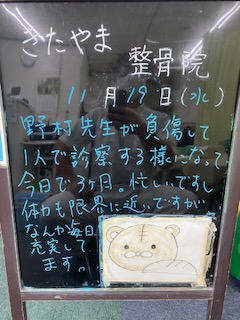 きたやま
整骨院
11月19日(水)
野村先生が負傷して
1人で診察する様になって
今日で3ヶ月。忙しいですし
体力も限界に近いですが
なんか毎日
充実して
ます。